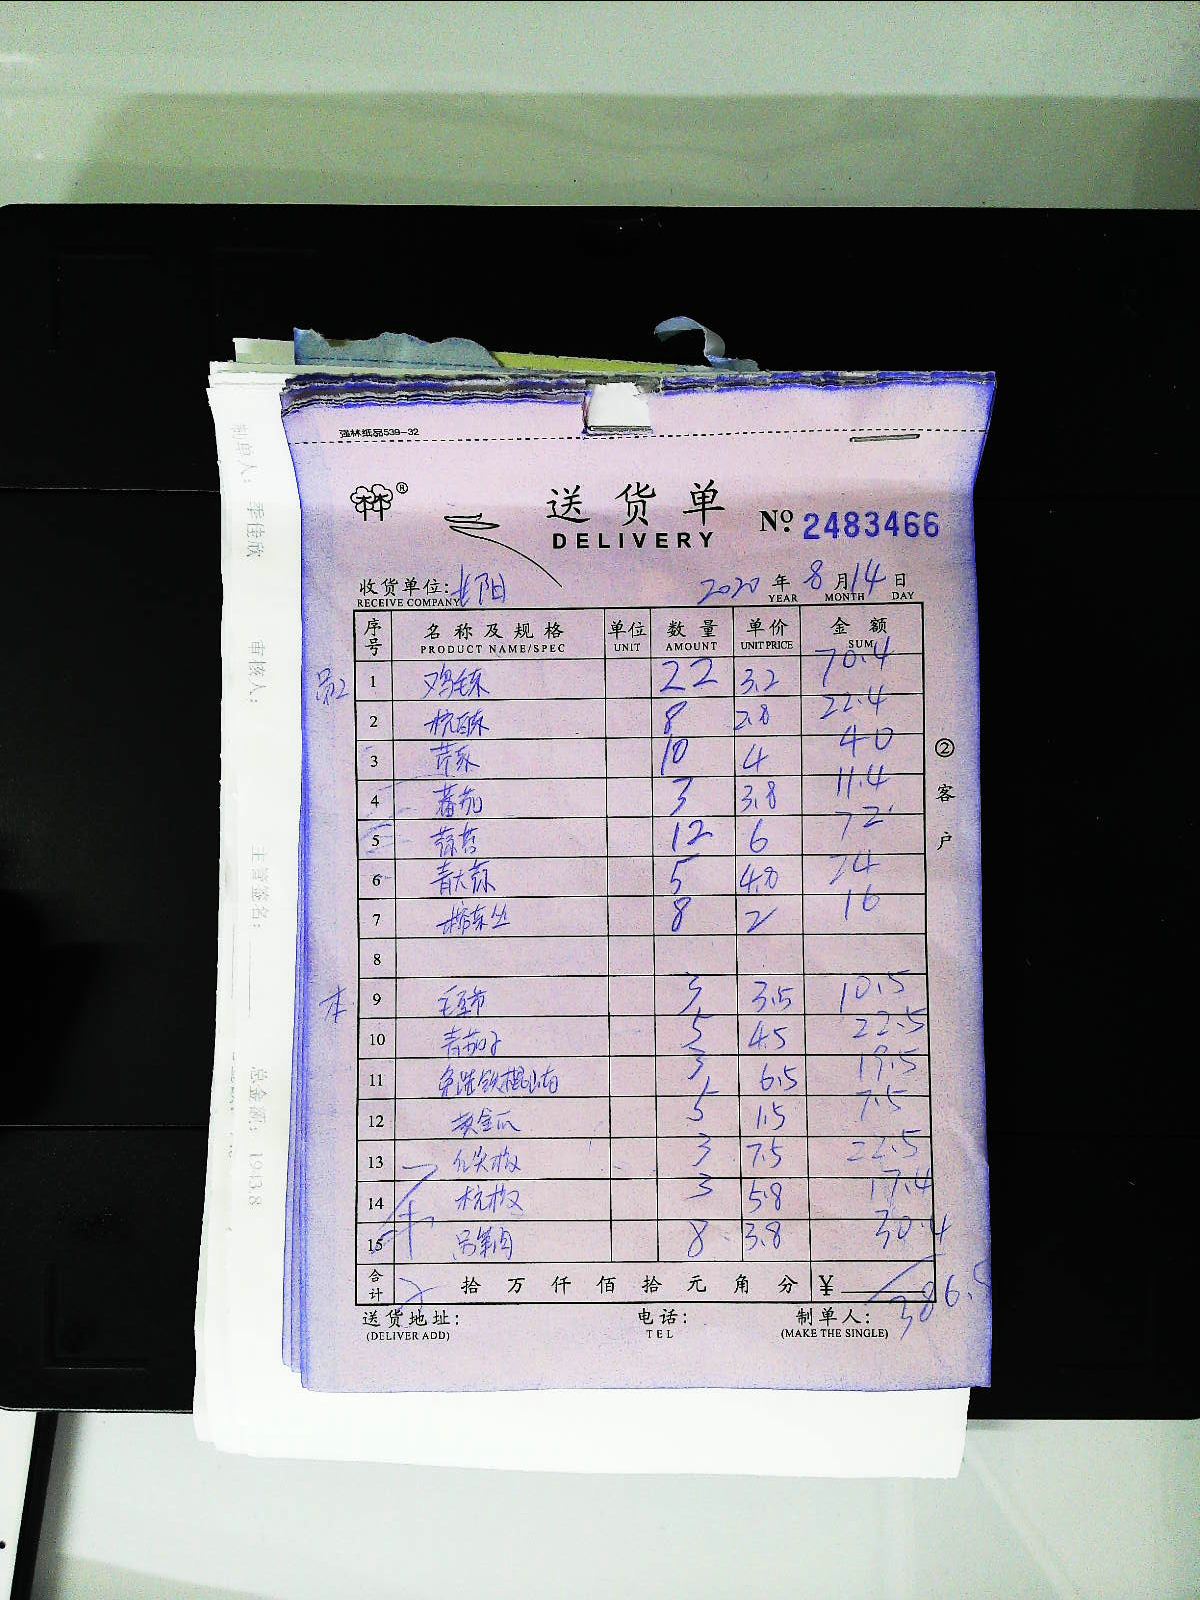 强林纸品539-32
林®
送货单
DELIVERY
№ 2483466
收货单位: 长阳 2020 年 8 月 14 日
RECEIVE COMPANY YEAR MONTH DAY
序号 名称及规格 单位 数量 单价 金额
PRODUCT NAME/SPEC UNIT AMOUNT UNIT PRICE SUM
1 鸡毛菜 22 3.2 70.4
2 杭白菜 8 2.8 22.4
3 芹菜 10 4 40
4 蕃茄 3 3.8 11.4
5 蒜苔 12 6 72
6 青大蒜 5 4.8 24
7 榨菜丝 8 2 16
8
本 9 3 3.5 10.5
10 青茄子 5 4.5 22.5
11 3 6.5 19.5
12 黄金瓜 5 1.5 7.5
13 3 7.5 22.5
14 杭椒 3 5.8 17.4
15 8 3.8 30.4
合计 拾 万 仟 佰 拾 元 角 分 ¥ 386.5
送货地址: 电话: 制单人:
(DELIVER ADD) TEL (MAKE THE SINGLE)
②客户
制单人: 季佳欣 审核人: 主管签名: 总金额: 1943.8